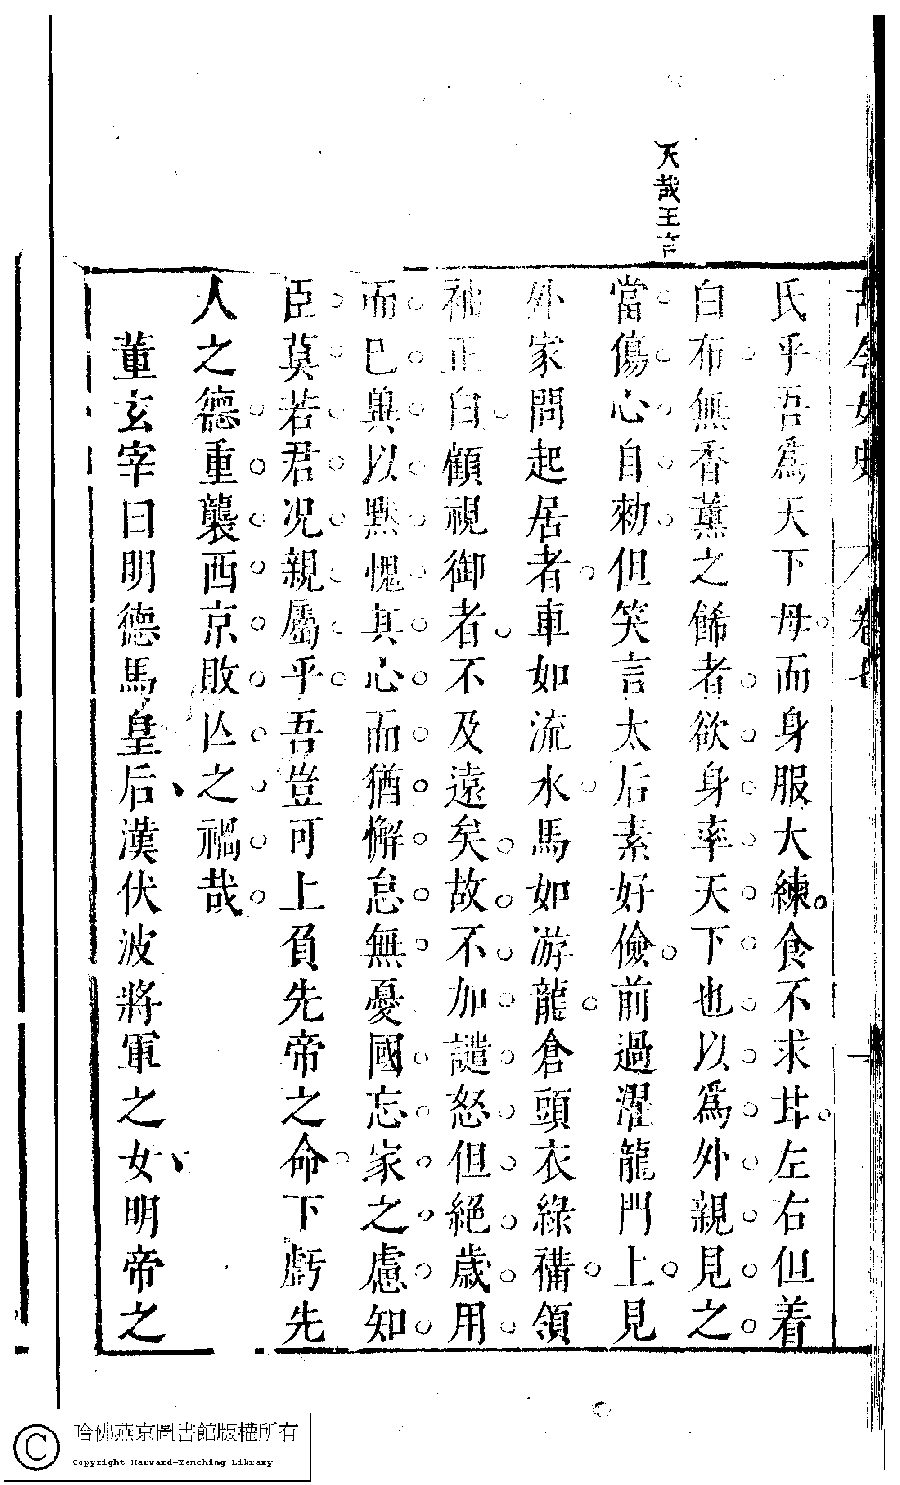 古今女史 卷七
大哉王言
氏乎吾爲天下母而身服大練食不求甘左右但着
白布無香薰之餙者欲身率天下也以爲外親見之
當傷心自勑但笑言太后素好儉前過濯龍門上見
外家問起居者車如流水馬如游龍倉頭衣綠褠領
袖正白顧視御者不及遠矣故不加譴怒但絕歲用
而已冀以默愧其心而猶懈怠無憂國忘家之慮知
臣莫若君况親屬乎吾豈可上負先帝之命下虧先
人之德重襲西京敗亾之禍哉
董玄宰曰明德馬皇后漢伏波將軍之女明帝之
哈佛燕京圖書館版權所有
Copyright Harvard-Yenching Library